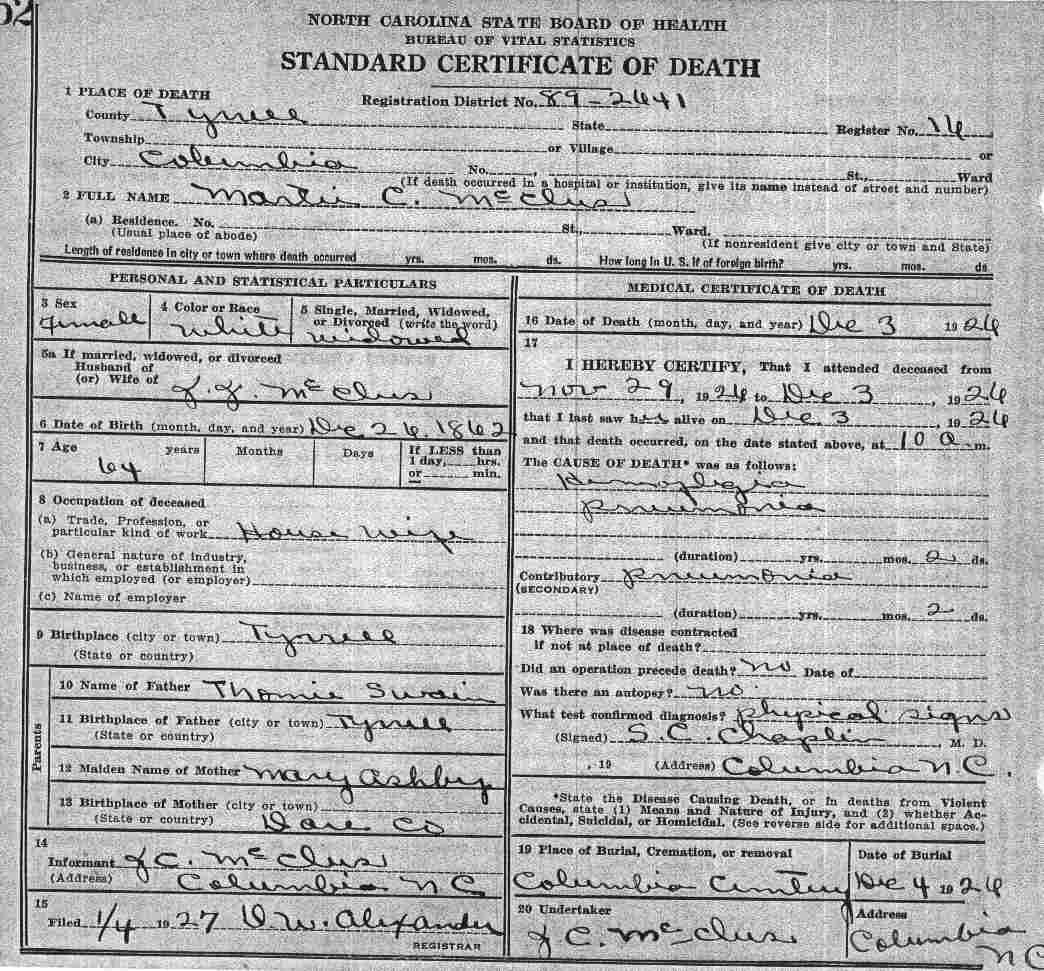 52
NORTH CAROLINA STATE BOARD OF HEALTH
BUREAU OF VITAL STATISTICS
STANDARD CERTIFICATE OF DEATH
1 PLACE OF DEATH Registration District No. 89-2641
County Tyrrell State Register No. 14
Township or Village or
City Columbia No. , St., Ward
(If death occurred in a hospital or institution, give its name instead of street and number)
2 FULL NAME C. McClus
(a) Residence. No. St., Ward.
(Usual place of abode) (If nonresident give city or town and State)
Length of residence in city or town where death occurred yrs. mos. ds. How long in U. S. if of foreign birth? yrs. mos. ds.
PERSONAL AND STATISTICAL PARTICULARS
3 Sex
female
4 Color or Race
White
5 Single, Married, Widowed,
or Divorced (write the word)
widowed
5a If married, widowed, or divorced
Husband of
(or) Wife of McClus
6 Date of Birth (month, day, and year) Dec 26, 1862
7 Age years Months Days If LESS than
64 1 day, hrs.
or min.
8 Occupation of deceased
(a) Trade, Profession, or
particular kind of work House wife
(b) General nature of industry,
business, or establishment in
which employed (or employer)
(c) Name of employer
9 Birthplace (city or town) Tyrrell
(State or country)
Parents
10 Name of Father Swain
11 Birthplace of Father (city or town) Tyrrell
(State or country)
12 Maiden Name of Mother Mary Ashby
13 Birthplace of Mother (city or town)
(State or country) Dare Co
14
Informant J C. McClus
(Address) Columbia N C
15
Filed 1/4 1927 D. W. Alexander
REGISTRAR
MEDICAL CERTIFICATE OF DEATH
16 Date of Death (month, day, and year) Dec 3 1926
17
I HEREBY CERTIFY, That I attended deceased from
Nov 29, 1926 to Dec 3, 1926
that I last saw her alive on Dec 3, 1926
and that death occurred, on the date stated above, at 10 a m.
The CAUSE OF DEATH* was as follows:
Hemoplegia
pneumonia
(duration) yrs. mos. 2 ds.
Contributory pneumonia
(SECONDARY)
(duration) yrs. mos. 2 ds.
18 Where was disease contracted
if not at place of death?
Did an operation precede death? no Date of
Was there an autopsy? no.
What test confirmed diagnosis? physical signs
(Signed) S. C. Chaplin, M. D.
, 19 (Address) Columbia N.C.
*State the Disease Causing Death, or in deaths from Violent
Causes, state (1) Means and Nature of Injury, and (2) whether Ac-
cidental, Suicidal, or Homicidal. (See reverse side for additional space.)
19 Place of Burial, Cremation, or removal Date of Burial
Columbia Dec 4 1926
20 Undertaker Address
J C. McClus Columbia
N C